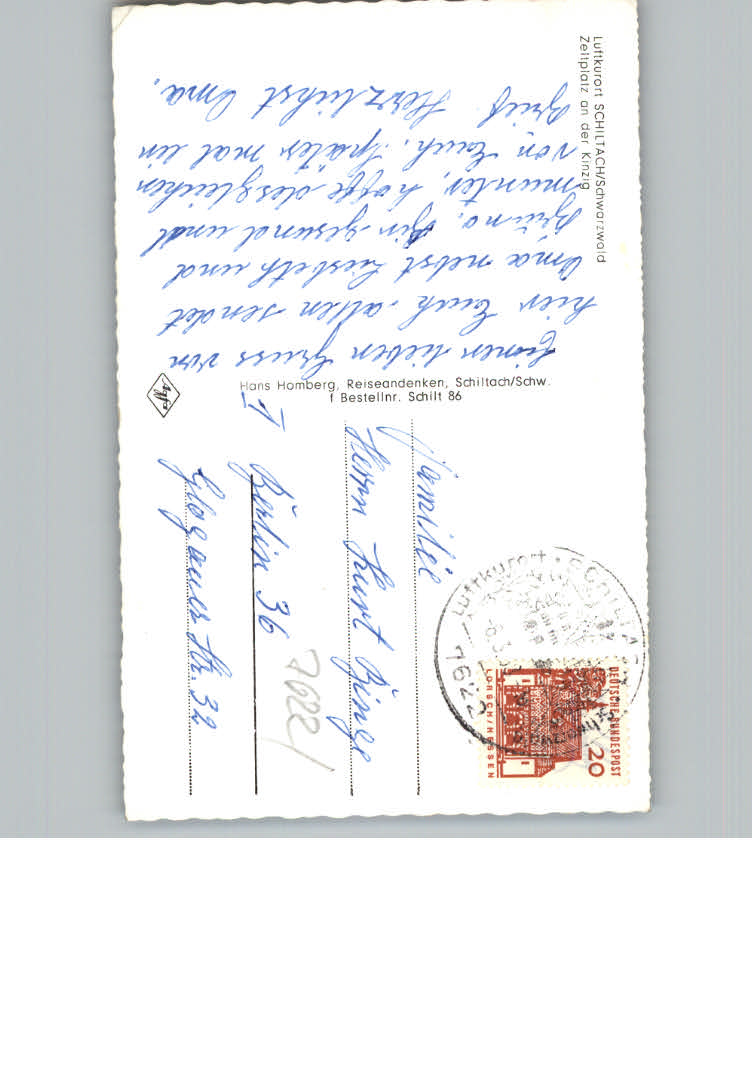 Luftkurort SCHILTACH/Schwarzwald
Zeltplatz an der Kinzig
Einen lieben Gruss von
hier Euch allen sendet
Oma nebst Liesbeth und
Bruno. Bin gesund und
munter, hoffe desgleichen
von Euch. Später mal ein
Brief Herzlichst Oma.
Agfa
Hans Homberg, Reiseandenken, Schiltach/Schw.
f Bestellnr. Schilt 86
Familie
Herrn Kurt Binge
1 Berlin 36
Glogauer Str. 32
7622
7622 Luftkurort SCHILTACH
Schwarzwald
DEUTSCHE BUNDESPOST
20
LORSCH/HESSEN